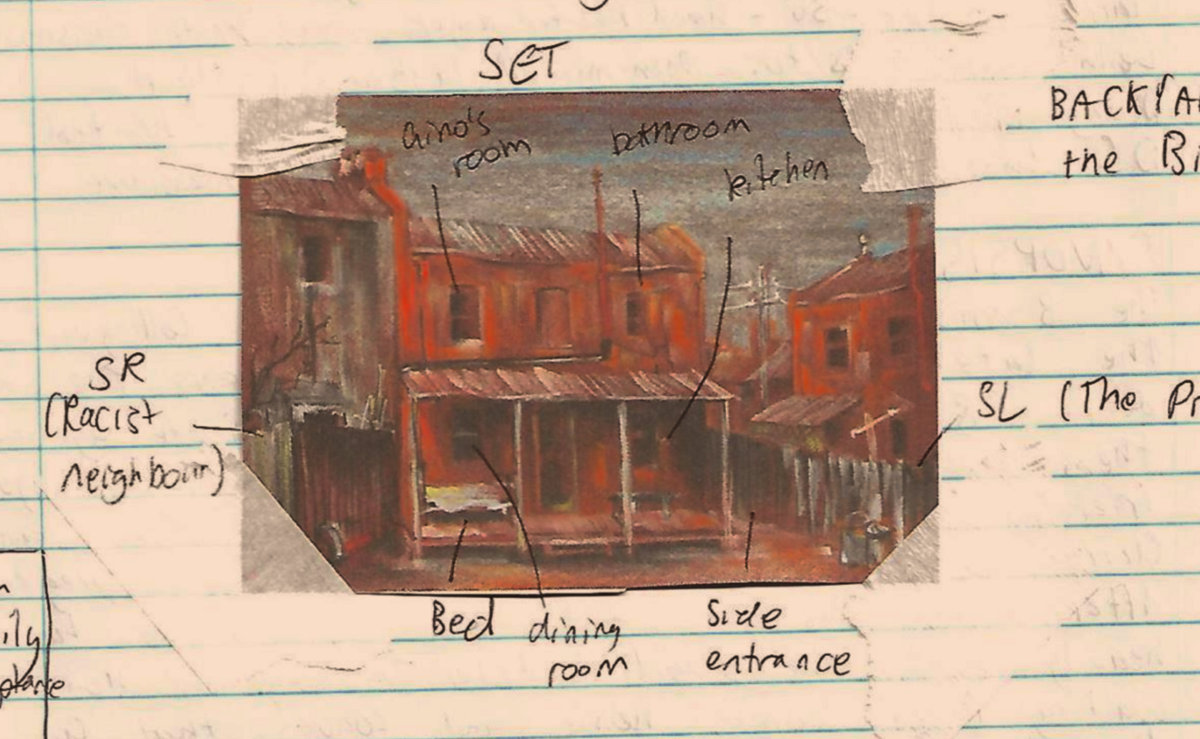 SET
Gino's
room
bathroom
kitchen
BACKYA
the Bi
SR
(Racist
neighbour)
SL (The Pr
ily
ptance
Bed
dining
room
Side
entrance